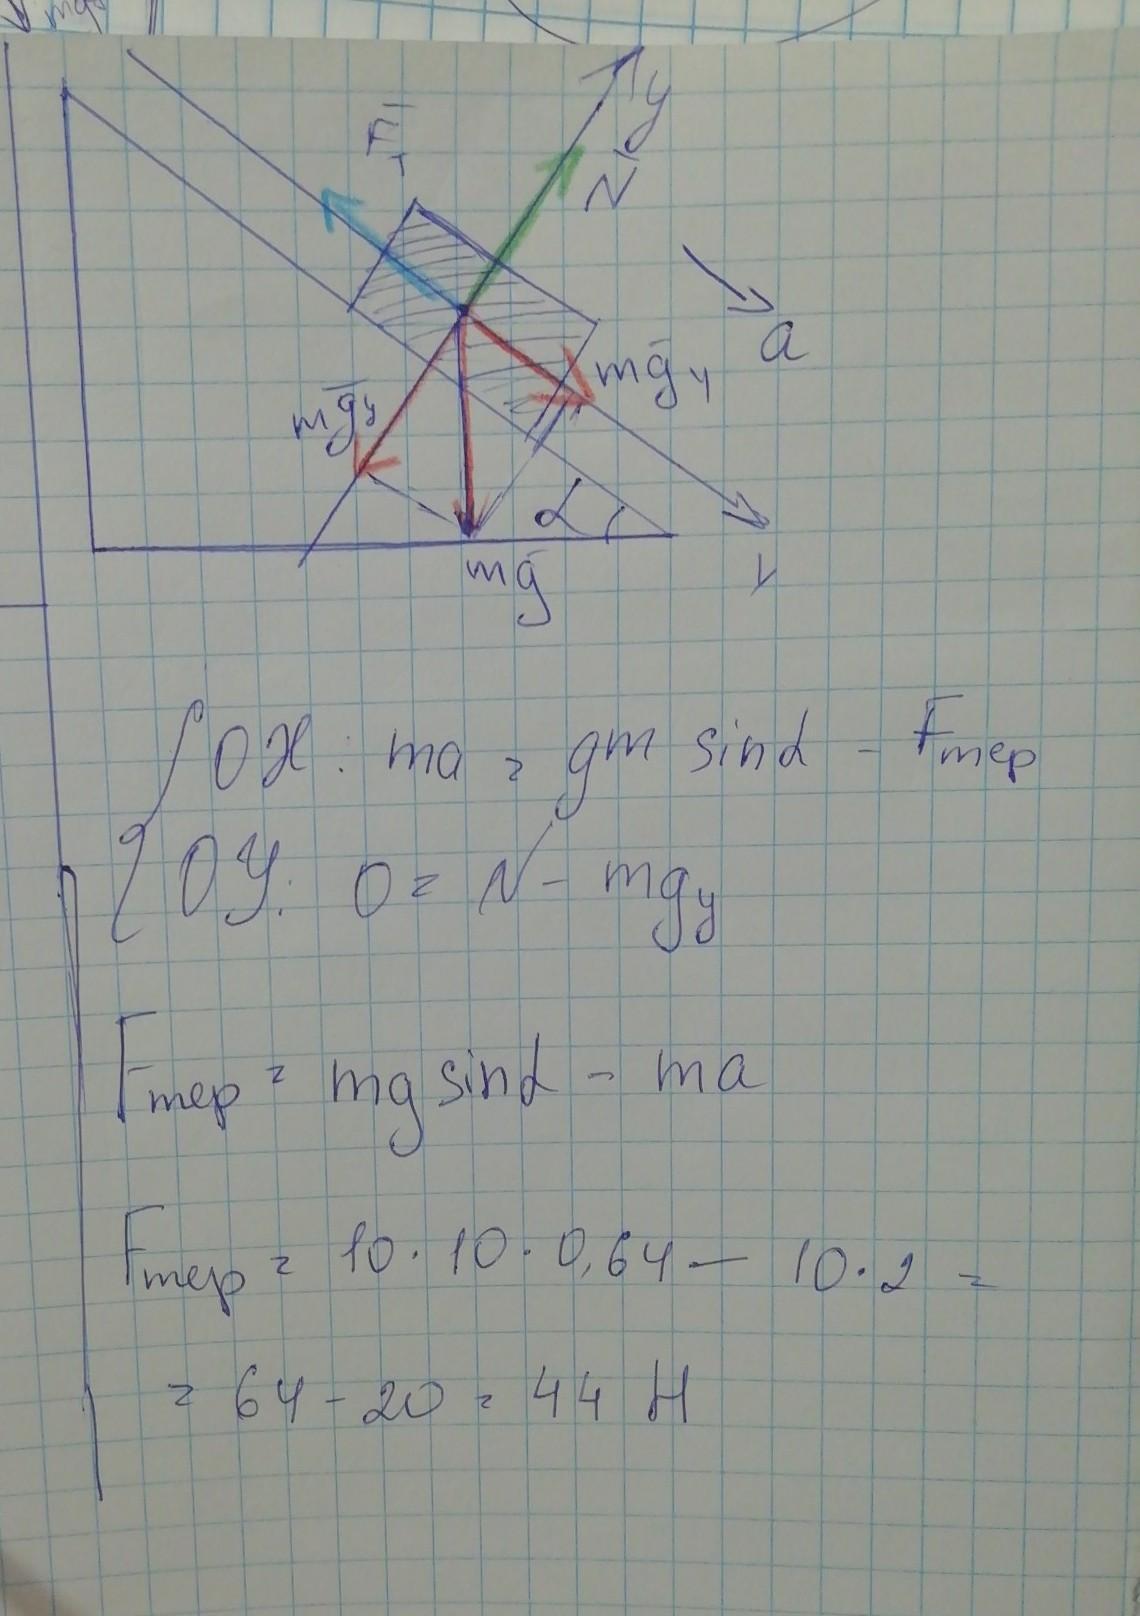 mg
F̄т
y
N̄
a
mḡy
mḡч
α
mḡ
x
ОХ: ma = gm sinα - Fтер
ОУ: 0 = N - mgy
Fтер = mg sinα - ma
Fтер = 10·10·0,64 — 10·2 =
= 64 - 20 = 44 Н